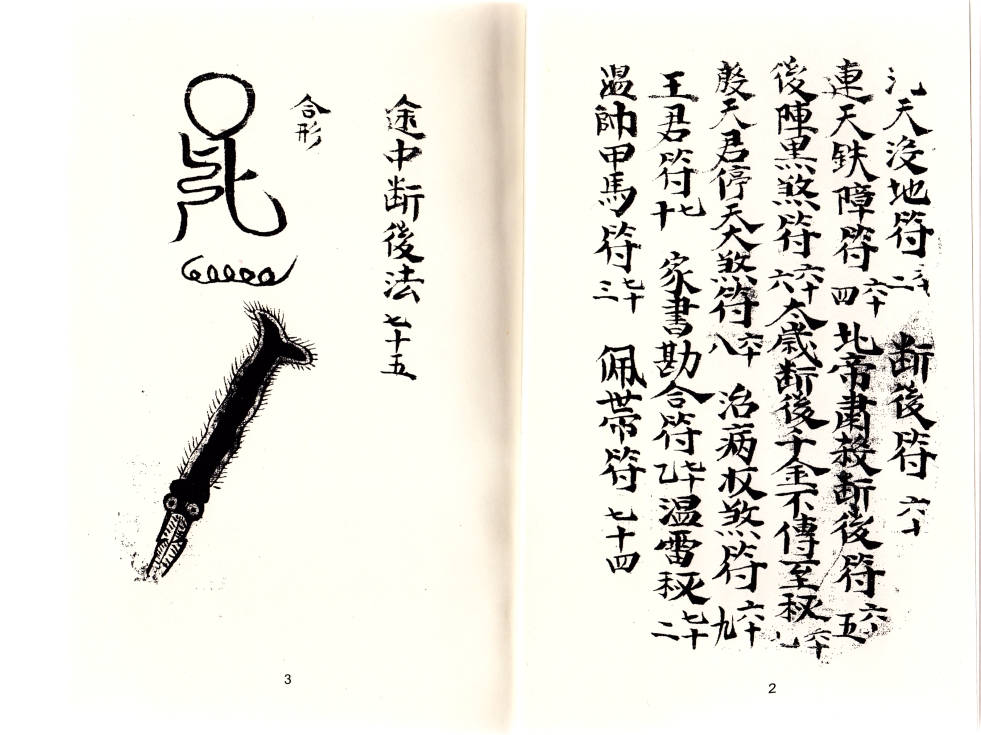 氿天没地符 六十二 断後符 六十
連天鉄障符 六十四 北帝肅殺断後符 六十五
後陣黒煞符 六十六 太歳断後千金不傳至秘 六十七
殷天君停天大煞符 六十八 治病收煞符 六十九
王君符 七十 家書勘合符 七十乙 温雷秘 七十二
温帥甲馬符 七十三 佩带符 七十四
2
途中断後法 七十五
合形
3